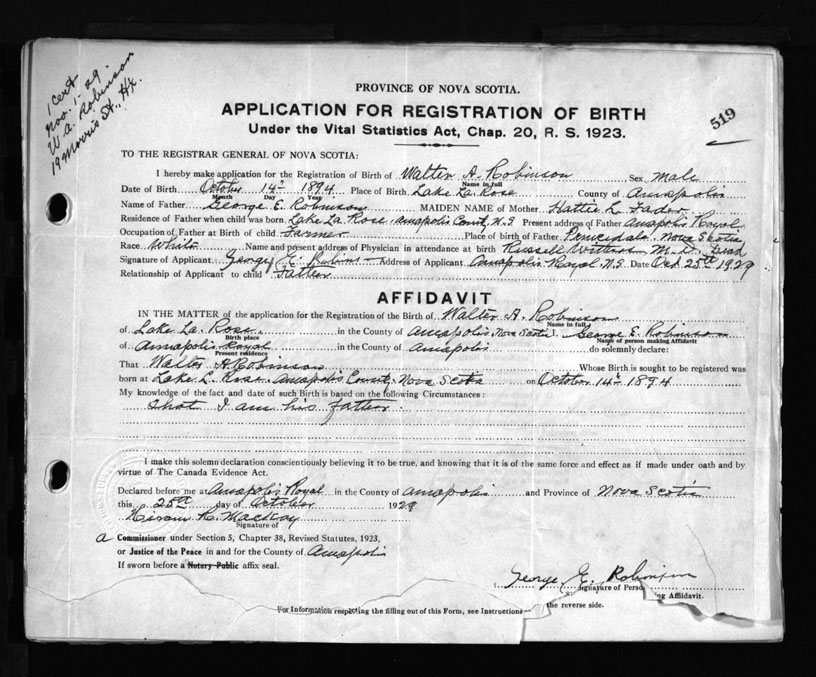 1 Cert
Nov. 1-29.
W. A. Robinson
19 Morris St., Hx.
519
PROVINCE OF NOVA SCOTIA.
APPLICATION FOR REGISTRATION OF BIRTH
Under the Vital Statistics Act, Chap. 20, R. S. 1923.
TO THE REGISTRAR GENERAL OF NOVA SCOTIA:
I hereby make application for the Registration of Birth of Walter A. Robinson Sex Male
Name in full
Date of Birth October 14th 1894 Place of Birth Lake La Rose County of Annapolis
Month Day Year
Name of Father George E. Robinson MAIDEN NAME of Mother Hattie L.
Residence of Father when child was born Lake La Rose, Annapolis County, N.S Present address of Father Annapolis Royal
Occupation of Father at Birth of child Farmer Place of birth of Father Nova Scotia
Race White Name and present address of Physician in attendance at birth Russell M.D. Dead
Signature of Applicant George E. Robinson Address of Applicant Annapolis Royal N.S. Date Oct 25th 1929
Relationship of Applicant to child Father
AFFIDAVIT
IN THE MATTER of the application for the Registration of the Birth of Walter A. Robinson
Name in full
of Lake La Rose in the County of Annapolis, Nova Scotia I, George E. Robinson
Birth place Name of person making Affidavit
of Annapolis Royal in the County of Annapolis do solemnly declare:
Present residence
That Walter A. Robinson Whose Birth is sought to be registered was
born at Lake L. Rose, Annapolis County, Nova Scotia on October 14th 1894
My knowledge of the fact and date of such Birth is based on the following Circumstances:
That I am his father.
I make this solemn declaration conscientiously believing it to be true, and knowing that it is of the same force and effect as if made under oath and by
virtue of The Canada Evidence Act.
Declared before me at Annapolis Royal in the County of Annapolis and Province of Nova Scotia
this 25th day of October 1929
Hiram R. Mackay
Signature of
a Commissioner under Section 5, Chapter 38, Revised Statutes, 1923,
or Justice of the Peace in and for the County of Annapolis
If sworn before a Notary Public affix seal.
George E. Robinson
Signature of Perso ng Affidavit.
For Information respecting the filling out of this Form, see Instructions the reverse side.